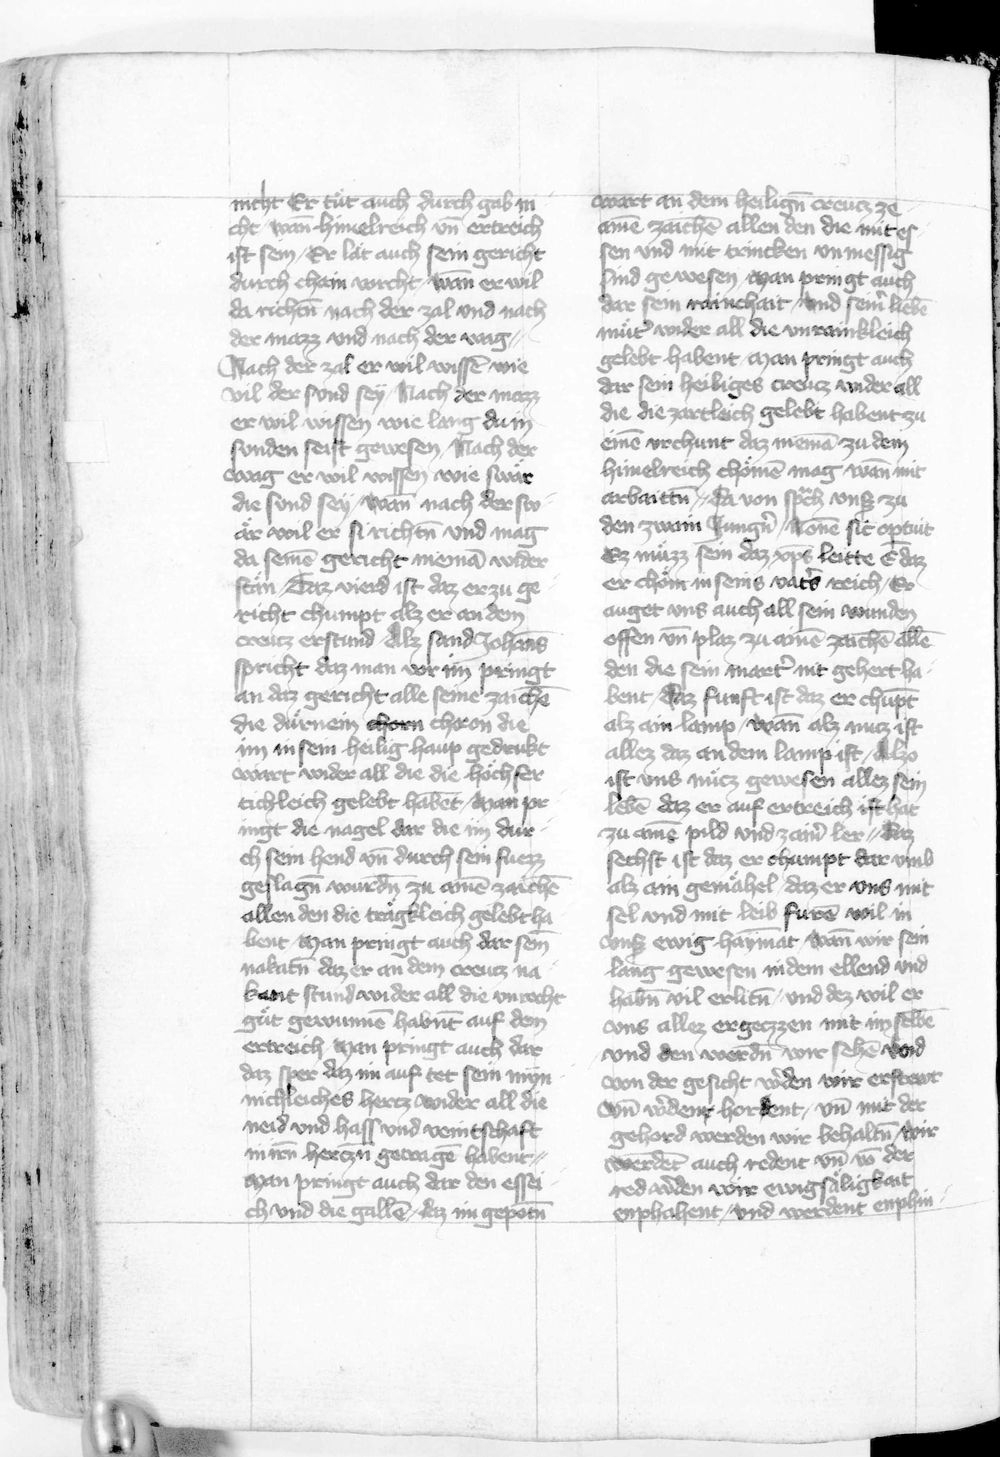 nicht Er tuͤt auch durch gab in
cht wan̄ himelreich vn̄ ertreich
ist sein / Er lat auch sein gericht
durch chain vorcht / wan̄ er wil
da richtn̄ nach der zal vnd nach
der mazz vnd nach der wag //
Nach der zal er wil wissē wie
vil der sund sey / Nach der mazz
er wil wissen wie lang du in
sunden seist gewesen / Nach der
wag er wil wissen wie swaͤr
die sund sey / wan̄ nach der sw
aͤr wil er si richtn̄ vnd mag
da seinē gericht niemā wider
stan / Daz vierd ist daz er zu ge
richt chumpt alz er an dem
creucz erstund / Alz sand Johans
spricht daz man vor im pringt
an daz gericht alle seine zaichē
die duͤrnein chorn choron die
im in sein heilig haup gedrukt
wart wider all die die hoͤchfer
tichleich gelebt habēt / Man pr
ingt die nagel dar die im dur
ch sein hend vn̄ durch sein fuezz
geslagn̄ wurdn̄ zu ainē zaichē
allen den die traͤgkleich gelebt ha
bent / Man pringt auch dar sein
nakatn̄ daz er an dem creucz na
kant stund wider all die vnrecht
guͤt gewunnē habnt auf dem
ertreich / Man pringt auch dar
daz sper daz im auf tet sein myn
nichleiches hercz wider all die
neid vnd hass vnd veintschaft
in irn̄ herczn̄ getragē habent //
Man pringt auch dar den essei
ch vnd die gallē / daz im gepotn̄
wart an dem heilign̄ creucz ze
ainē zaichē allen den die mit es
sen vnd mit trincken vnmessig
sind gewesen / Man pringt auch
dar sein rainchait / vnd seinr̄ liebē
muͤtr̄ wider all die vnrainkleich
gelebt habent / Man pringt auch
dar sein heiliges creucz wider all
die die zartleich gelebt habent zu
einē vrchunt daz niemā zu dem
himelreich choͤmē mag wan̄ mit
arbaittn̄ // da von sprach vnsz zu
den zwain Jungrn̄ / Nonē sic optuit
Ez muͤzz sein daz xps̄ leitte ē daz
er choͤm in seins vatr̄s reich / Er
auget vns auch all sein wunden
offen vn̄ plaz zu ainē zaichē allē
den die sein martr̄ nit gehert ha
bent / Daz funft ist daz er chūpt
alz ain lamp / wan̄ alz nucz ist
allez daz an dem lamp ist / Alzo
ist vns nuͤcz gewesen allez sein
lebē daz er auf ertreich ist hat
zu ainē pild vnd zainr̄ ler // Daz
sechst ist daz er chumpt dar vmb
alz ain gemaͤhel / daz er vns mit
sel vnd mit leib furē wil in
vnsz ewig haymat / wan̄ wir sein
lang gewesen in dem ellend vnd
habn̄ vil erlitn̄ / vnd dez wil er
vns allez ergeczzen mit im selbē
vnd den werdn̄ wir sehē vnd
von der gesicht wr̄den wir erfrewt
vn̄ wr̄dent hordent / vn̄ mit der
gehord werden wir behaltn̄ / wir
werdēt auch redent vn̄ vō der
red wr̄den wir ewigsaͤligkait
enphahent / vnd werdent enphin